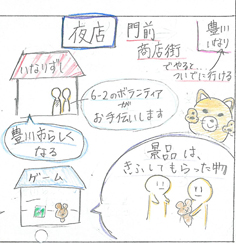 夜店
門前
商店街
豊川
いなり
でやると
ついでに行ける
いなりずし
6-2のボランティア
が
お手伝いします
豊川らしく
なる
ゲーム
景品は、
きふしてもらった物